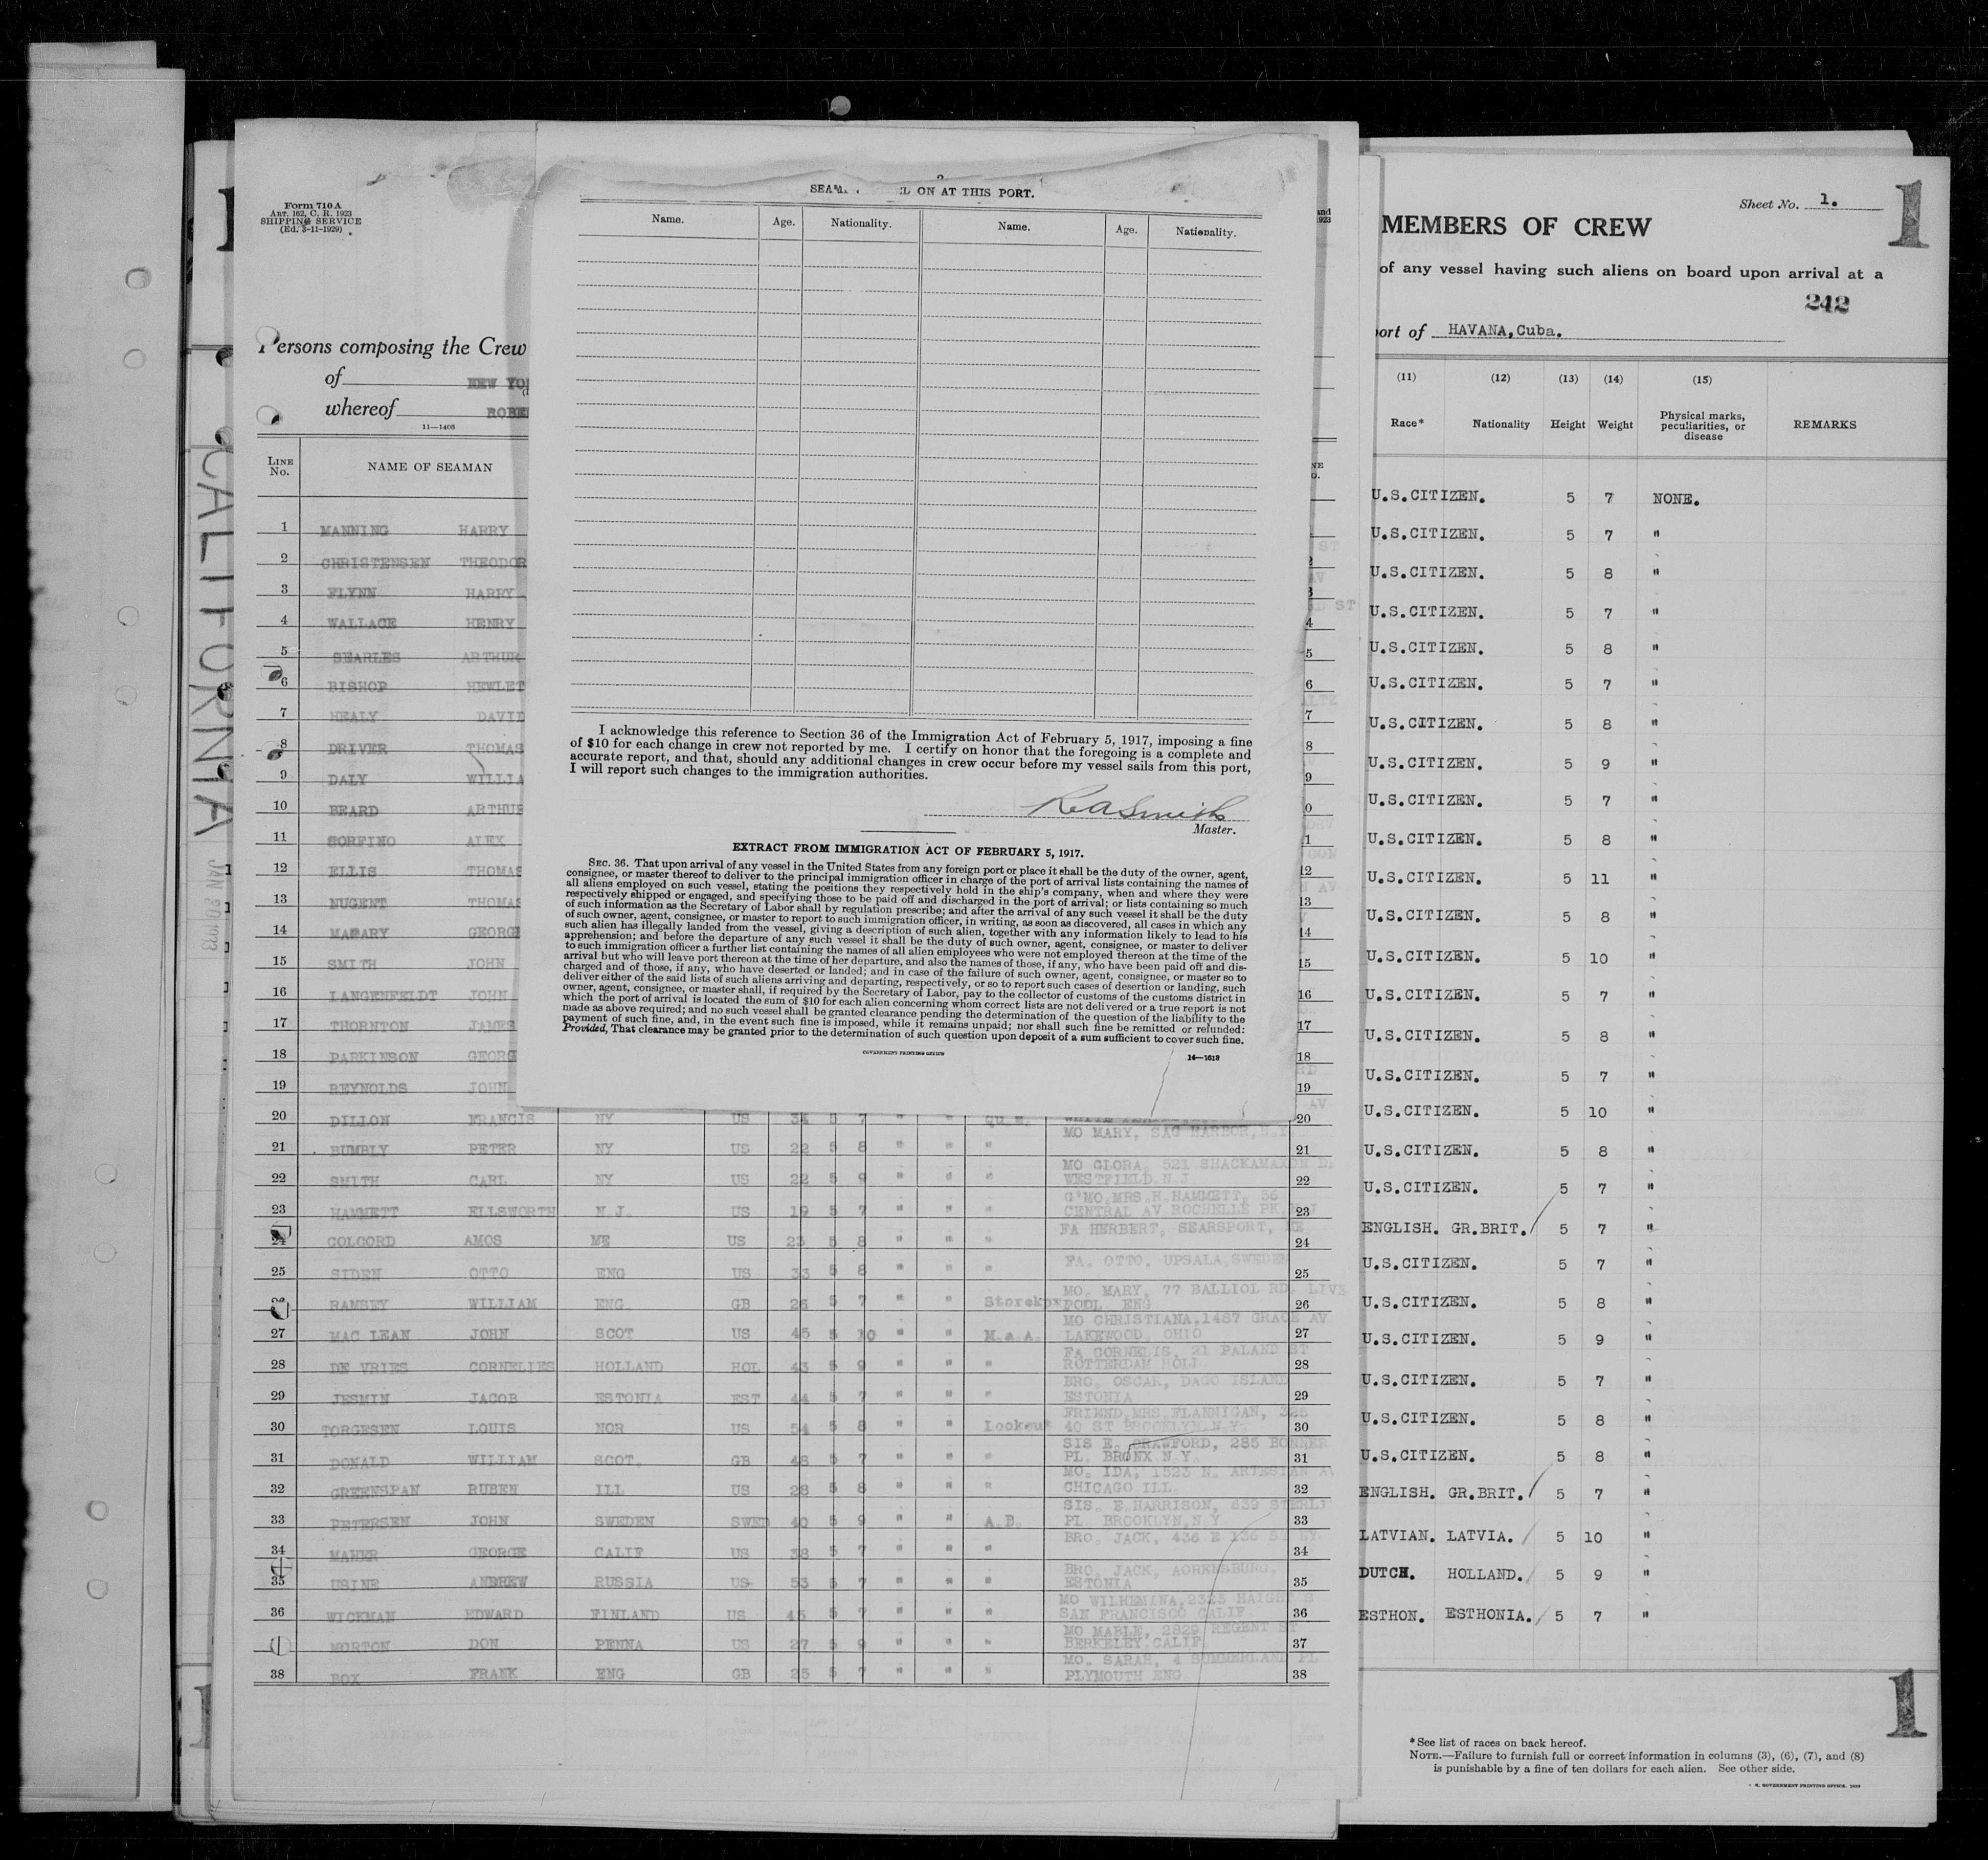 CALIFORNIA
JAN 30 1933
Form 710 A
ART. 162, C. R. 1923
SHIPPING SERVICE
(Ed. 3-11-1929)
Persons composing the Crew
of NEW YO
whereof ROBE
11—1406
LINE No. NAME OF SEAMAN
1 MANNING HARRY
2 CHRISTENSEN THEODOR
3 FLYNN HARRY
4 WALLACE HENRY
5 SEARLES ARTHUR
6 BISHOP HEWLET
7 HEALY DAVID
8 DRIVER THOMAS
9 DALY WILLIA
10 BEARD ARTHUR
11 SORFINO ALEX
12 ELLIS THOMAS
13 NUGENT THOMAS
14 GEORGE
15 SMITH JOHN
16 LANGENFELDT JOHN
17 THORNTON JAMES
18 PARKINSON GEORG
19 REYNOLDS JOHN
20 DILLON FRANCIS NY US 34 5 7 " " Qu.M. 20
MO MARY, SAG HARBOR, N.Y
21 BUMBLY PETER NY US 22 5 8 " " " 21
MO GLORA, 521 SHACKAMAXON D
22 SMITH CARL NY US 22 5 9 " " " WESTFIELD N.J 22
G'MO MRS H HAMMETT, 56
23 HAMMETT ELLSWORTH N.J. US 19 5 7 " " " CENTRAL AV ROCHELLE PK 23
FA HERBERT, SEARSPORT, ME
24 COLCORD AMOS ME US 23 5 8 " " " 24
FA. OTTO, UPSALA, SWEDEN
25 SIDEN OTTO ENG US 33 5 8 " " " 25
MO. MARY, 77 BALLIOL RD. LIVE
26 RAMSEY WILLIAM ENG. GB 26 5 7 " " Storekpr POOL ENG 26
MO CHRISTIANA, 1487 GRACE AV
27 MAC LEAN JOHN SCOT US 45 5 10 " " M.a A. LAKEWOOD, OHIO 27
FA CORNELIS, 21 PALAND ST
28 DE VRIES CORNELIES HOLLAND HOL 43 5 9 " " " ROTTERDAM HOLL 28
BRO. OSCAR, DAGO ISLAND
29 JESMIN JACOB ESTONIA EST 44 5 7 " " " ESTONIA 29
FRIEND MRS FLANNIGAN, 325
30 TORGESEN LOUIS NOR US 54 5 8 " " Lookout 40 ST BROOKLYN N.Y. 30
SIS E. CRAWFORD, 285 BONNER
31 DONALD WILLIAM SCOT. GB 48 5 7 " " " PL. BRONX N.Y. 31
MO. IDA, 1523 N. ARTESIAN AV
32 GREENSPAN RUBEN ILL US 28 5 8 " " " CHICAGO ILL. 32
SIS. E HARRISON, 639 STERLI
33 PETERSEN JOHN SWEDEN SWED 40 5 9 " " A.B. PL. BROOKLYN, N.Y 33
BRO. JACK, 436 E 136 ST NY.
34 MAHER GEORGE CALIF US 38 5 7 " " " 34
BRO. JACK, AORENSBURG,
35 USINE ANDREW RUSSIA US 53 5 7 " " " ESTONIA 35
MO WILHEMINA, 2323 HAIGHT S
36 WICKMAN EDWARD FINLAND US 45 5 7 " " " SAN FRANCISCO CALIF 36
MO MABLE, 2829 REGENT ST
MORTON DON PENNA US 27 5 9 " " " BERKELEY CALIF 37
MO. SARAH, 4 SUMMERLAND PL
38 BOX FRANK ENG GB 25 5 7 " " " PLYMOUTH ENG 38
SEAM L ON AT THIS PORT.
Name. Age. Nationality. Name. Age. Nationality.
I acknowledge this reference to Section 36 of the Immigration Act of February 5, 1917, imposing a fine
of $10 for each change in crew not reported by me. I certify on honor that the foregoing is a complete and
accurate report, and that, should any additional changes in crew occur before my vessel sails from this port,
I will report such changes to the immigration authorities.
R A Smith
Master.
EXTRACT FROM IMMIGRATION ACT OF FEBRUARY 5, 1917.
SEC. 36. That upon arrival of any vessel in the United States from any foreign port or place it shall be the duty of the owner, agent,
consignee, or master thereof to deliver to the principal immigration officer in charge of the port of arrival lists containing the names of
all aliens employed on such vessel, stating the positions they respectively hold in the ship's company, when and where they were
respectively shipped or engaged, and specifying those to be paid off and discharged in the port of arrival; or lists containing so much
of such information as the Secretary of Labor shall by regulation prescribe; and after the arrival of any such vessel it shall be the duty
of such owner, agent, consignee, or master to report to such immigration officer, in writing, as soon as discovered, all cases in which any
such alien has illegally landed from the vessel, giving a description of such alien, together with any information likely to lead to his
apprehension; and before the departure of any such vessel it shall be the duty of such owner, agent, consignee, or master to deliver
to such immigration officer a further list containing the names of all alien employees who were not employed thereon at the time of the
arrival but who will leave port thereon at the time of her departure, and also the names of those, if any, who have been paid off and dis-
charged and of those, if any, who have deserted or landed; and in case of the failure of such owner, agent, consignee, or master so to
deliver either of the said lists of such aliens arriving and departing, respectively, or so to report such cases of desertion or landing, such
owner, agent, consignee, or master shall, if required by the Secretary of Labor, pay to the collector of customs of the customs district in
which the port of arrival is located the sum of $10 for each alien concerning whom correct lists are not delivered or a true report is not
made as above required; and no such vessel shall be granted clearance pending the determination of the question of the liability to the
payment of such fine, and, in the event such fine is imposed, while it remains unpaid; nor shall such fine be remitted or refunded:
Provided, That clearance may be granted prior to the determination of such question upon deposit of a sum sufficient to cover such fine.
GOVERNMENT PRINTING OFFICE 14—1618
Sheet No. 1. 1
MEMBERS OF CREW
of any vessel having such aliens on board upon arrival at a
242
ort of HAVANA, Cuba.
(11) (12) (13) (14) (15)
Race* Nationality Height Weight Physical marks, peculiarities, or disease REMARKS
U.S.CITIZEN. 5 7 NONE.
U.S.CITIZEN. 5 7 "
U.S.CITIZEN. 5 8 "
U.S.CITIZEN. 5 7 "
U.S.CITIZEN. 5 8 "
U.S.CITIZEN. 5 7 "
U.S.CITIZEN. 5 8 "
U.S.CITIZEN. 5 9 "
U.S.CITIZEN. 5 7 "
U.S.CITIZEN. 5 8 "
U.S.CITIZEN. 5 11 "
U.S.CITIZEN. 5 8 "
U.S.CITIZEN. 5 10 "
U.S.CITIZEN. 5 7 "
U.S.CITIZEN. 5 8 "
U.S.CITIZEN. 5 7 "
U.S.CITIZEN. 5 10 "
U.S.CITIZEN. 5 8 "
U.S.CITIZEN. 5 7 "
ENGLISH. GR.BRIT. 5 7 "
U.S.CITIZEN. 5 7 "
U.S.CITIZEN. 5 8 "
U.S.CITIZEN. 5 9 "
U.S.CITIZEN. 5 7 "
U.S.CITIZEN. 5 8 "
U.S.CITIZEN. 5 8 "
ENGLISH. GR.BRIT. 5 7 "
LATVIAN. LATVIA. 5 10 "
DUTCH. HOLLAND. 5 9 "
ESTHON. ESTHONIA. 5 7 "
1
*See list of races on back hereof.
NOTE.—Failure to furnish full or correct information in columns (3), (6), (7), and (8)
is punishable by a fine of ten dollars for each alien. See other side.